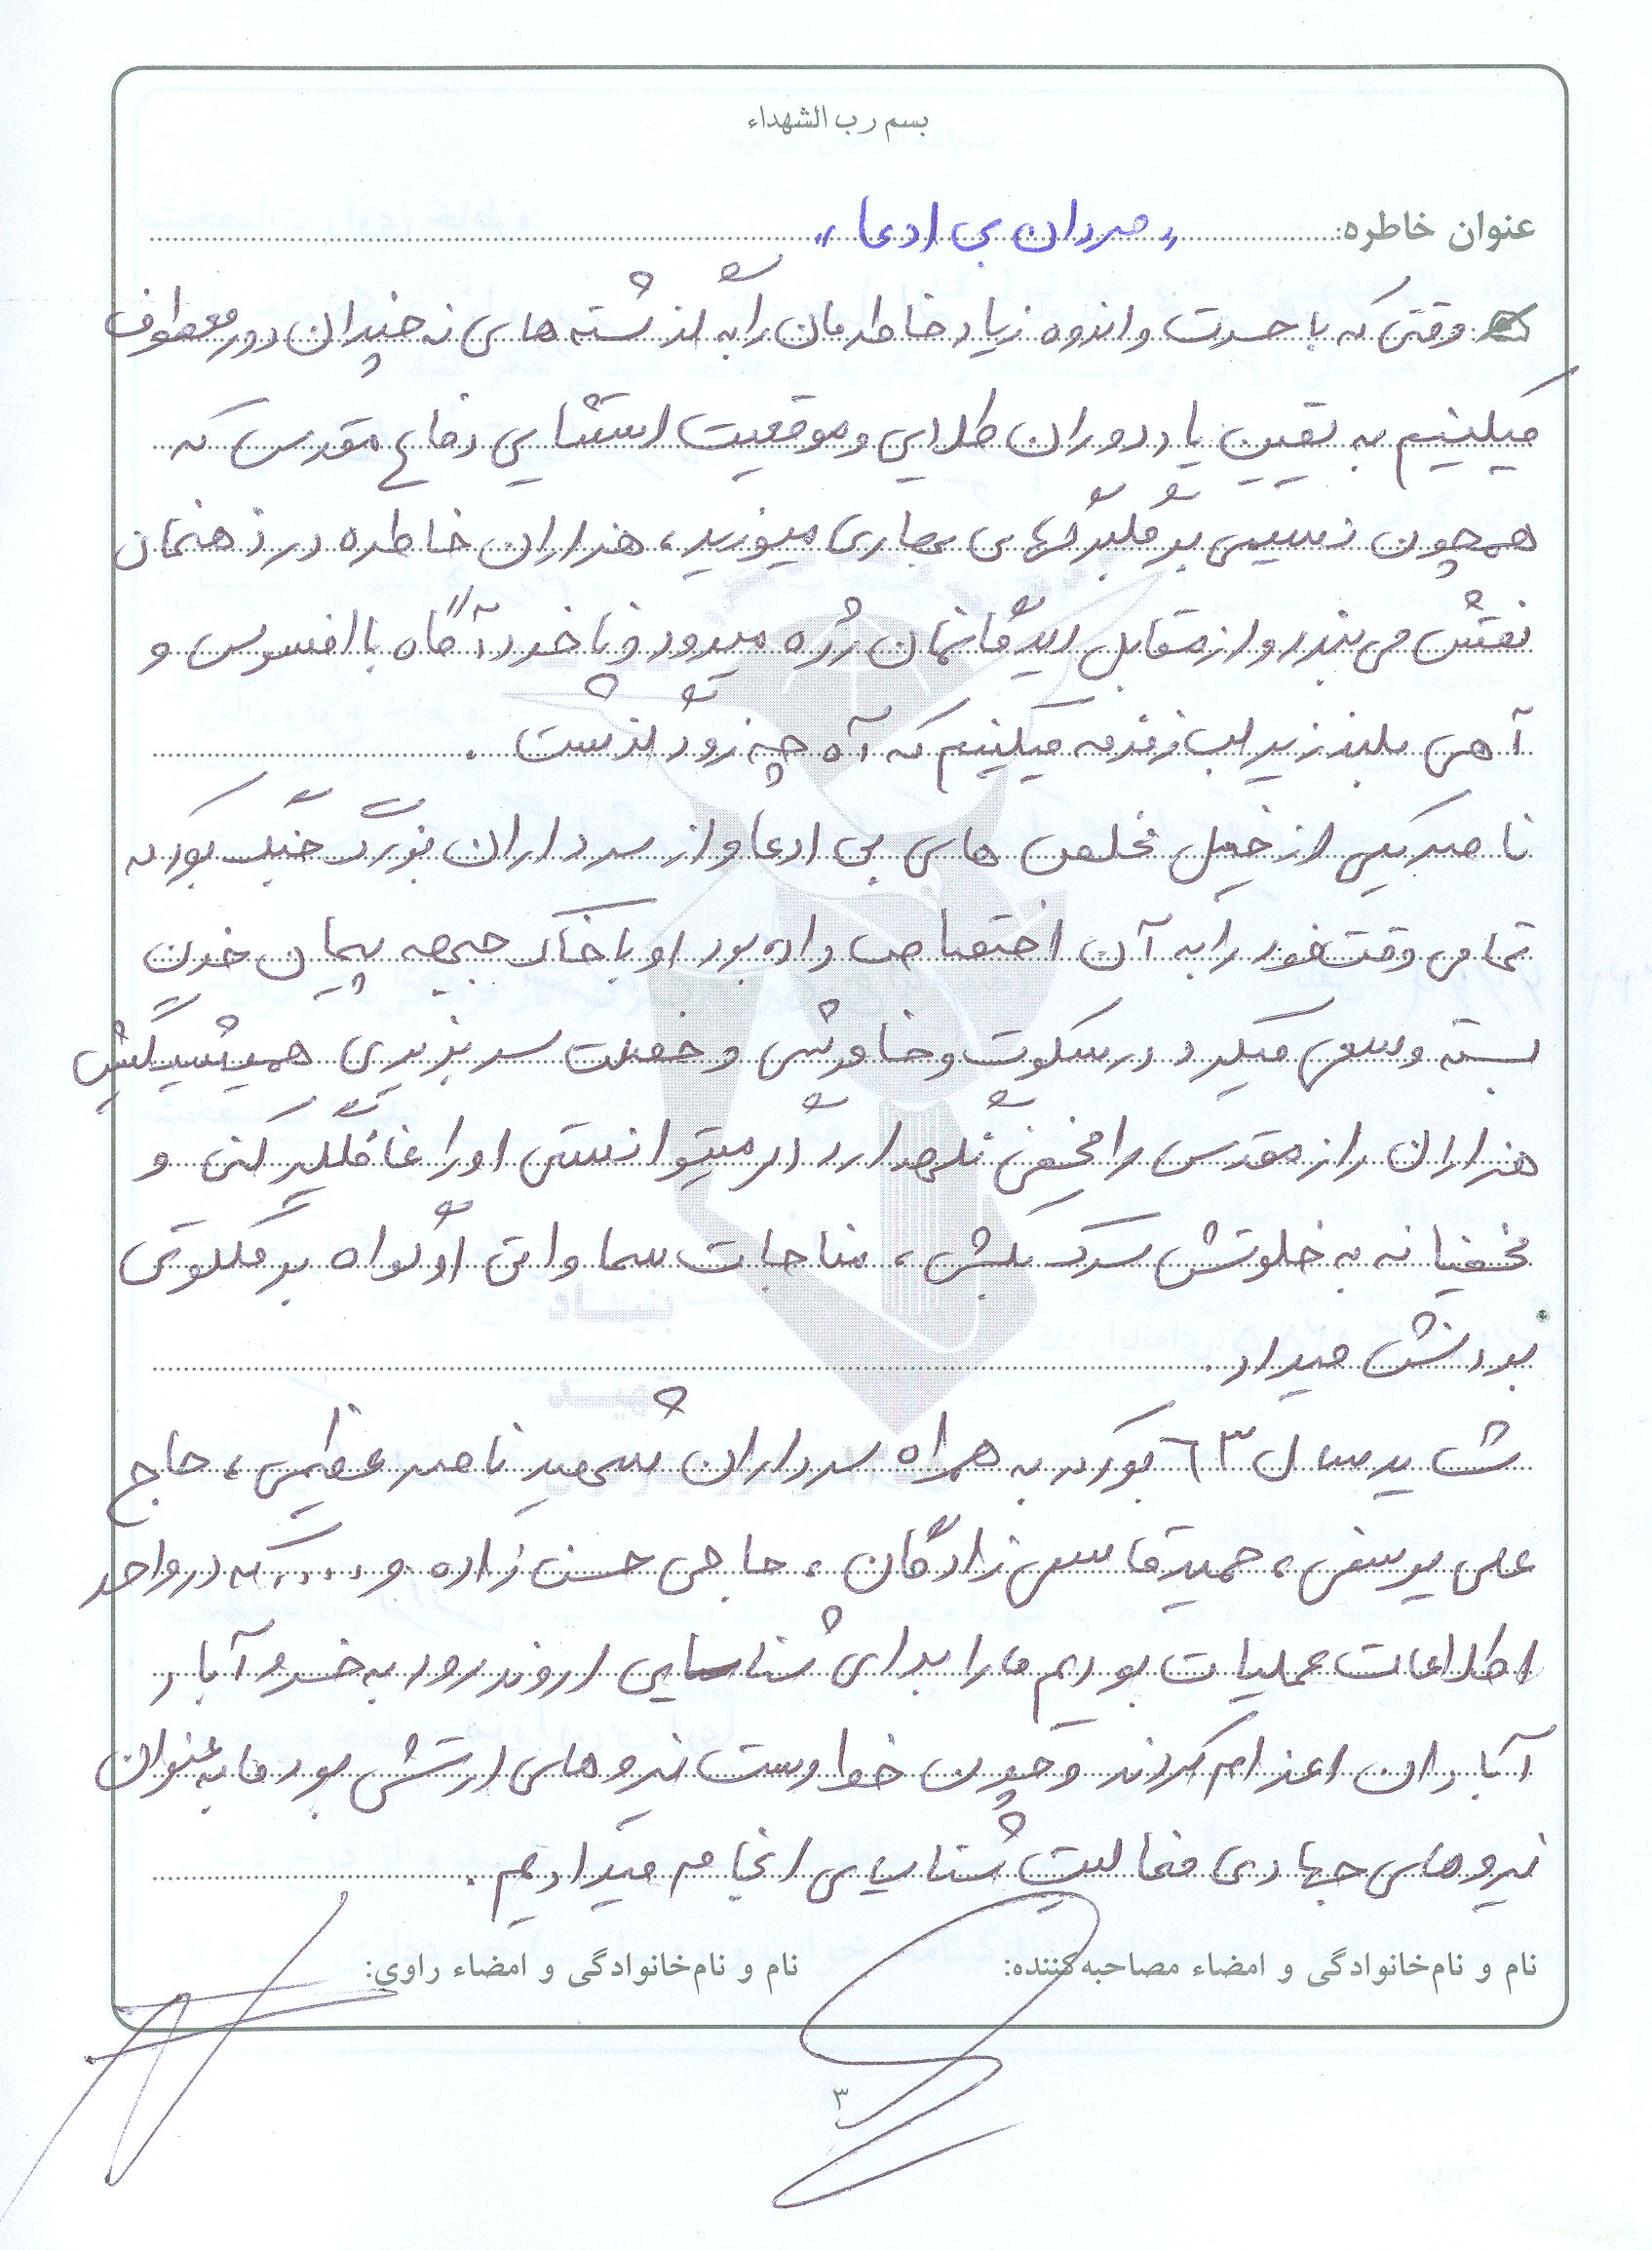 بسم رب الشهداء
عنوان خاطره: «مردان بی ادعا»
وقتی که با حسرت و اندوه زیاد خاطرمان را به گذشته های نه چندان دور معطوف
میکنیم به یقین یاد دوران طلایی و موقعیت استثنایی دفاع مقدس که
همچون نسیمی بر گلبرگهای بهاری میوزید، هزاران خاطره در ذهنمان
نقش می بندد و از مقابل دیدگانمان رژه میرود و ناخودآگاه با افسوس و
آهی بلند زیر لب زمزمه میکنیم که آه چه زود گذشت .
ناصر یکی از خیل مخلص های بی ادعا و از سرداران بزرگ جنگ بود که
تمامی وقت خود را به آن اختصاص داده بود او با خاک جبهه پیمان خونین
بسته و سعی میکرد در سکوت و خاموشی و خصلت سر بزیری همیشگیش
هزاران راز مقدس را مخفی نگهدارد اگر میتوانستی او را غافلگیر کنی و
مخفیانه به خلوتش سرک بکشی ، مناجات سماواتی او گواه بر ملکوتی
بودنش میداد .
سال ٦٣ بود که به همراه سرداران شهید ناصر عظیمی ، حاج
علی یوسفی ، حمید قاسمی زادگان ، حاجی حسن زاده و ..... که در واحد
اطلاعات عملیات بودیم ما را برای شناسایی اروند رود به خسروآباد
آبادان اعزام کردند و چون خواست نیروهای ارتش بود ما به عنوان
نیروهای جهادی فعالیت شناسایی انجام میدادیم .
نام و نام‌خانوادگی و امضاء مصاحبه‌کننده:
نام و نام‌خانوادگی و امضاء راوی:
۳